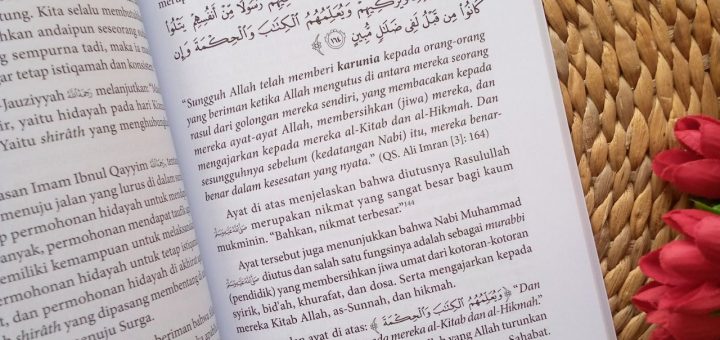 tungan. Kita selalu membutuhkan
andaipun seseorang
g sempurna tadi, maka ia
tetap istiqamah dan konsisten
Jauziyyah melanjutkan:
ir, yaitu hidayah pada hari
Yaitu shirâth yang menghubung
asan Imam Ibnul Qayyim
menuju jalan yang lurus di dalam
permohonan hidayah untuk
anyak, permohonan mendapat taufik
memiliki kemampuan untuk melaksana
permohonan hidayah untuk tetap istiqamah
dan permohonan hidayah di akhirat
shirâth yang dipasang membentang di
menuju Surga.
beriman bahwa
رَسُولًا مِّنْ أَنفُسِهِمْ يَتْلُوا۟
وَيُزَكِّيهِمْ وَيُعَلِّمُهُمُ الْكِتَٰبَ وَالْحِكْمَةَ وَإِن
كَانُوا۟ مِن قَبْلُ لَفِى ضَلَٰلٍ مُّبِينٍ ١٦٤
"Sungguh Allah telah memberi karunia kepada orang-orang
yang beriman ketika Allah mengutus di antara mereka seorang
rasul dari golongan mereka sendiri, yang membacakan kepada
mereka ayat-ayat Allah, membersihkan (jiwa) mereka, dan
mengajarkan kepada mereka al-Kitab dan al-Hikmah. Dan
sesungguhnya sebelum (kedatangan Nabi) itu, mereka benar-
benar dalam kesesatan yang nyata." (QS. Ali Imran [3]: 164)
Ayat di atas menjelaskan bahwa diutusnya Rasulullah
ﷺ merupakan nikmat yang sangat besar bagi kaum
mukminin. "Bahkan, nikmat terbesar."¹⁴⁴
Ayat tersebut juga menunjukkan bahwa Nabi Muhammad
ﷺ diutus dan salah satu fungsinya adalah sebagai murabbi
(pendidik) yang membersihkan jiwa umat dari kotoran-kotoran
syirik, bid'ah, khurafat, dan dosa. Serta mengajarkan kepada
mereka Kitab Allah, as-Sunnah, dan hikmah.
ayat di atas: ﴿ وَيُعَلِّمُهُمُ الْكِتَٰبَ وَالْحِكْمَةَ ﴾ "Dan
kepada mereka al-Kitab dan al-Hikmah"
yang Allah turunkan
Sahabat.